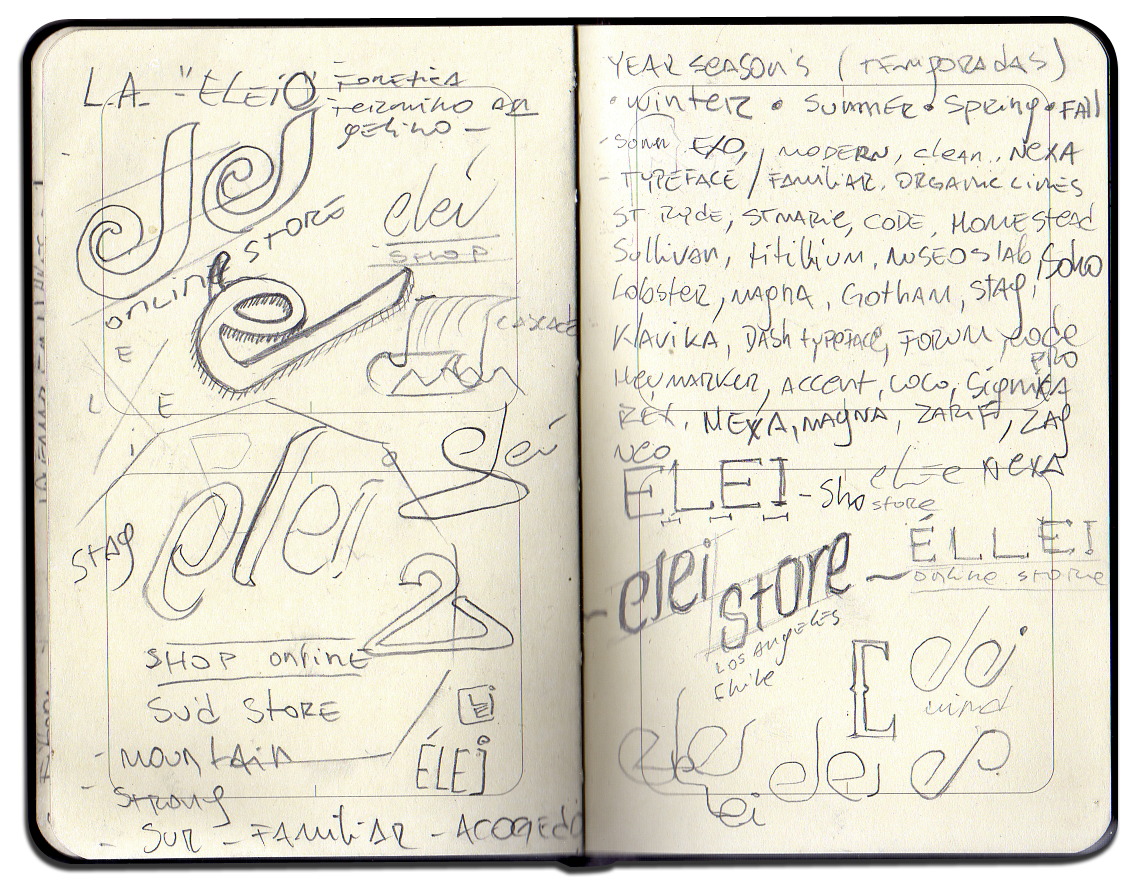 L.A. "ELEiO" FONETICA
TERMINO AN
GELINO —
elei
SHOP
ONLINE STORE
e
CASCADE
E
L
E
i
elei
elei
STAG
SHOP online
Sud STORE
- MOUNTAIN
- STRONG
- SUR - FAMILIAR - ACOGEDO
LEi
ÉLEi
YEAR SEASON'S (TEMPORADAS)
• WINTER • SUMMER • SPRING • FALL
EXO, MODERN, clean, NEXA
- TYPEFACE / FAMILIAR. ORGANIC LINES
ST RYDE, ST MARIE, CODE, HOMESTEAD
Sullivan, titillium, MUSEO slab, Soho
Lobster, MAGNA, GOTHAM, STAG,
KLAVIKA, DASH typeface, FORUM, CODE
PRO
HEYMARKER, ACCENT, COCO, SIGNIKA
REX, NEXA, MAGNA, ZARIF, ZAG
NEO
ELEI - Sho
store
NEXA
- elei store -
LOS ANGELES
Chile
ÉLLEI
online store
E
elei
wind
elei
elei
lei